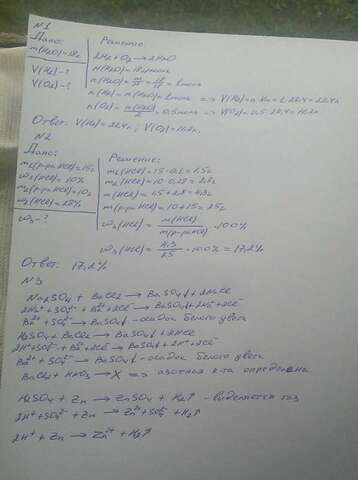 N1
Дано: Решение:
m(H2O)=18г 2H2+O2→2H2O
V(H2)-? M(H2O)=18г/моль
V(O2)-? n(H2O)=m/M=18/18=1моль
n(H2)=n(H2O)=1моль => V(H2)=n·Vm=1·22,4=22,4л
n(O2)=n(H2O)/2=0,5моль => V(O2)=0,5·22,4=11,2л
Ответ: V(H2)=22,4л; V(O2)=11,2л.
N2
Дано: Решение:
m1(р-ра HCl)=15г m1(HCl)=15·0,1=1,5г
w1(HCl)=10% m2(HCl)=10·0,28=2,8г
m2(р-ра HCl)=10г m3(HCl)=1,5+2,8=4,3г
w2(HCl)=28% m(р-ра HCl)=10+15=25г
w3-? w3(HCl)=m(HCl)/m(р-ра HCl)·100%
w3(HCl)=4,3/25·100%=17,2%
Ответ: 17,2%
N3
Na2SO4+BaCl2→BaSO4↓+2NaCl
2Na⁺+SO4²⁻+Ba²⁺+2Cl⁻→BaSO4↓+2Na⁺+2Cl⁻
Ba²⁺+SO4²⁻→BaSO4↓-осадок белого цвета
H2SO4+BaCl2→BaSO4↓+2HCl
2H⁺+SO4²⁻+Ba²⁺+2Cl⁻→BaSO4↓+2H⁺+2Cl⁻
Ba²⁺+SO4²⁻→BaSO4↓-осадок белого цвета
BaCl2+HNO3→X => азотная к-та определена
H2SO4+Zn→ZnSO4+H2↑-выделяется газ
2H⁺+SO4²⁻+Zn→Zn²⁺+SO4²⁻+H2↑
2H⁺+Zn→Zn²⁺+H2↑